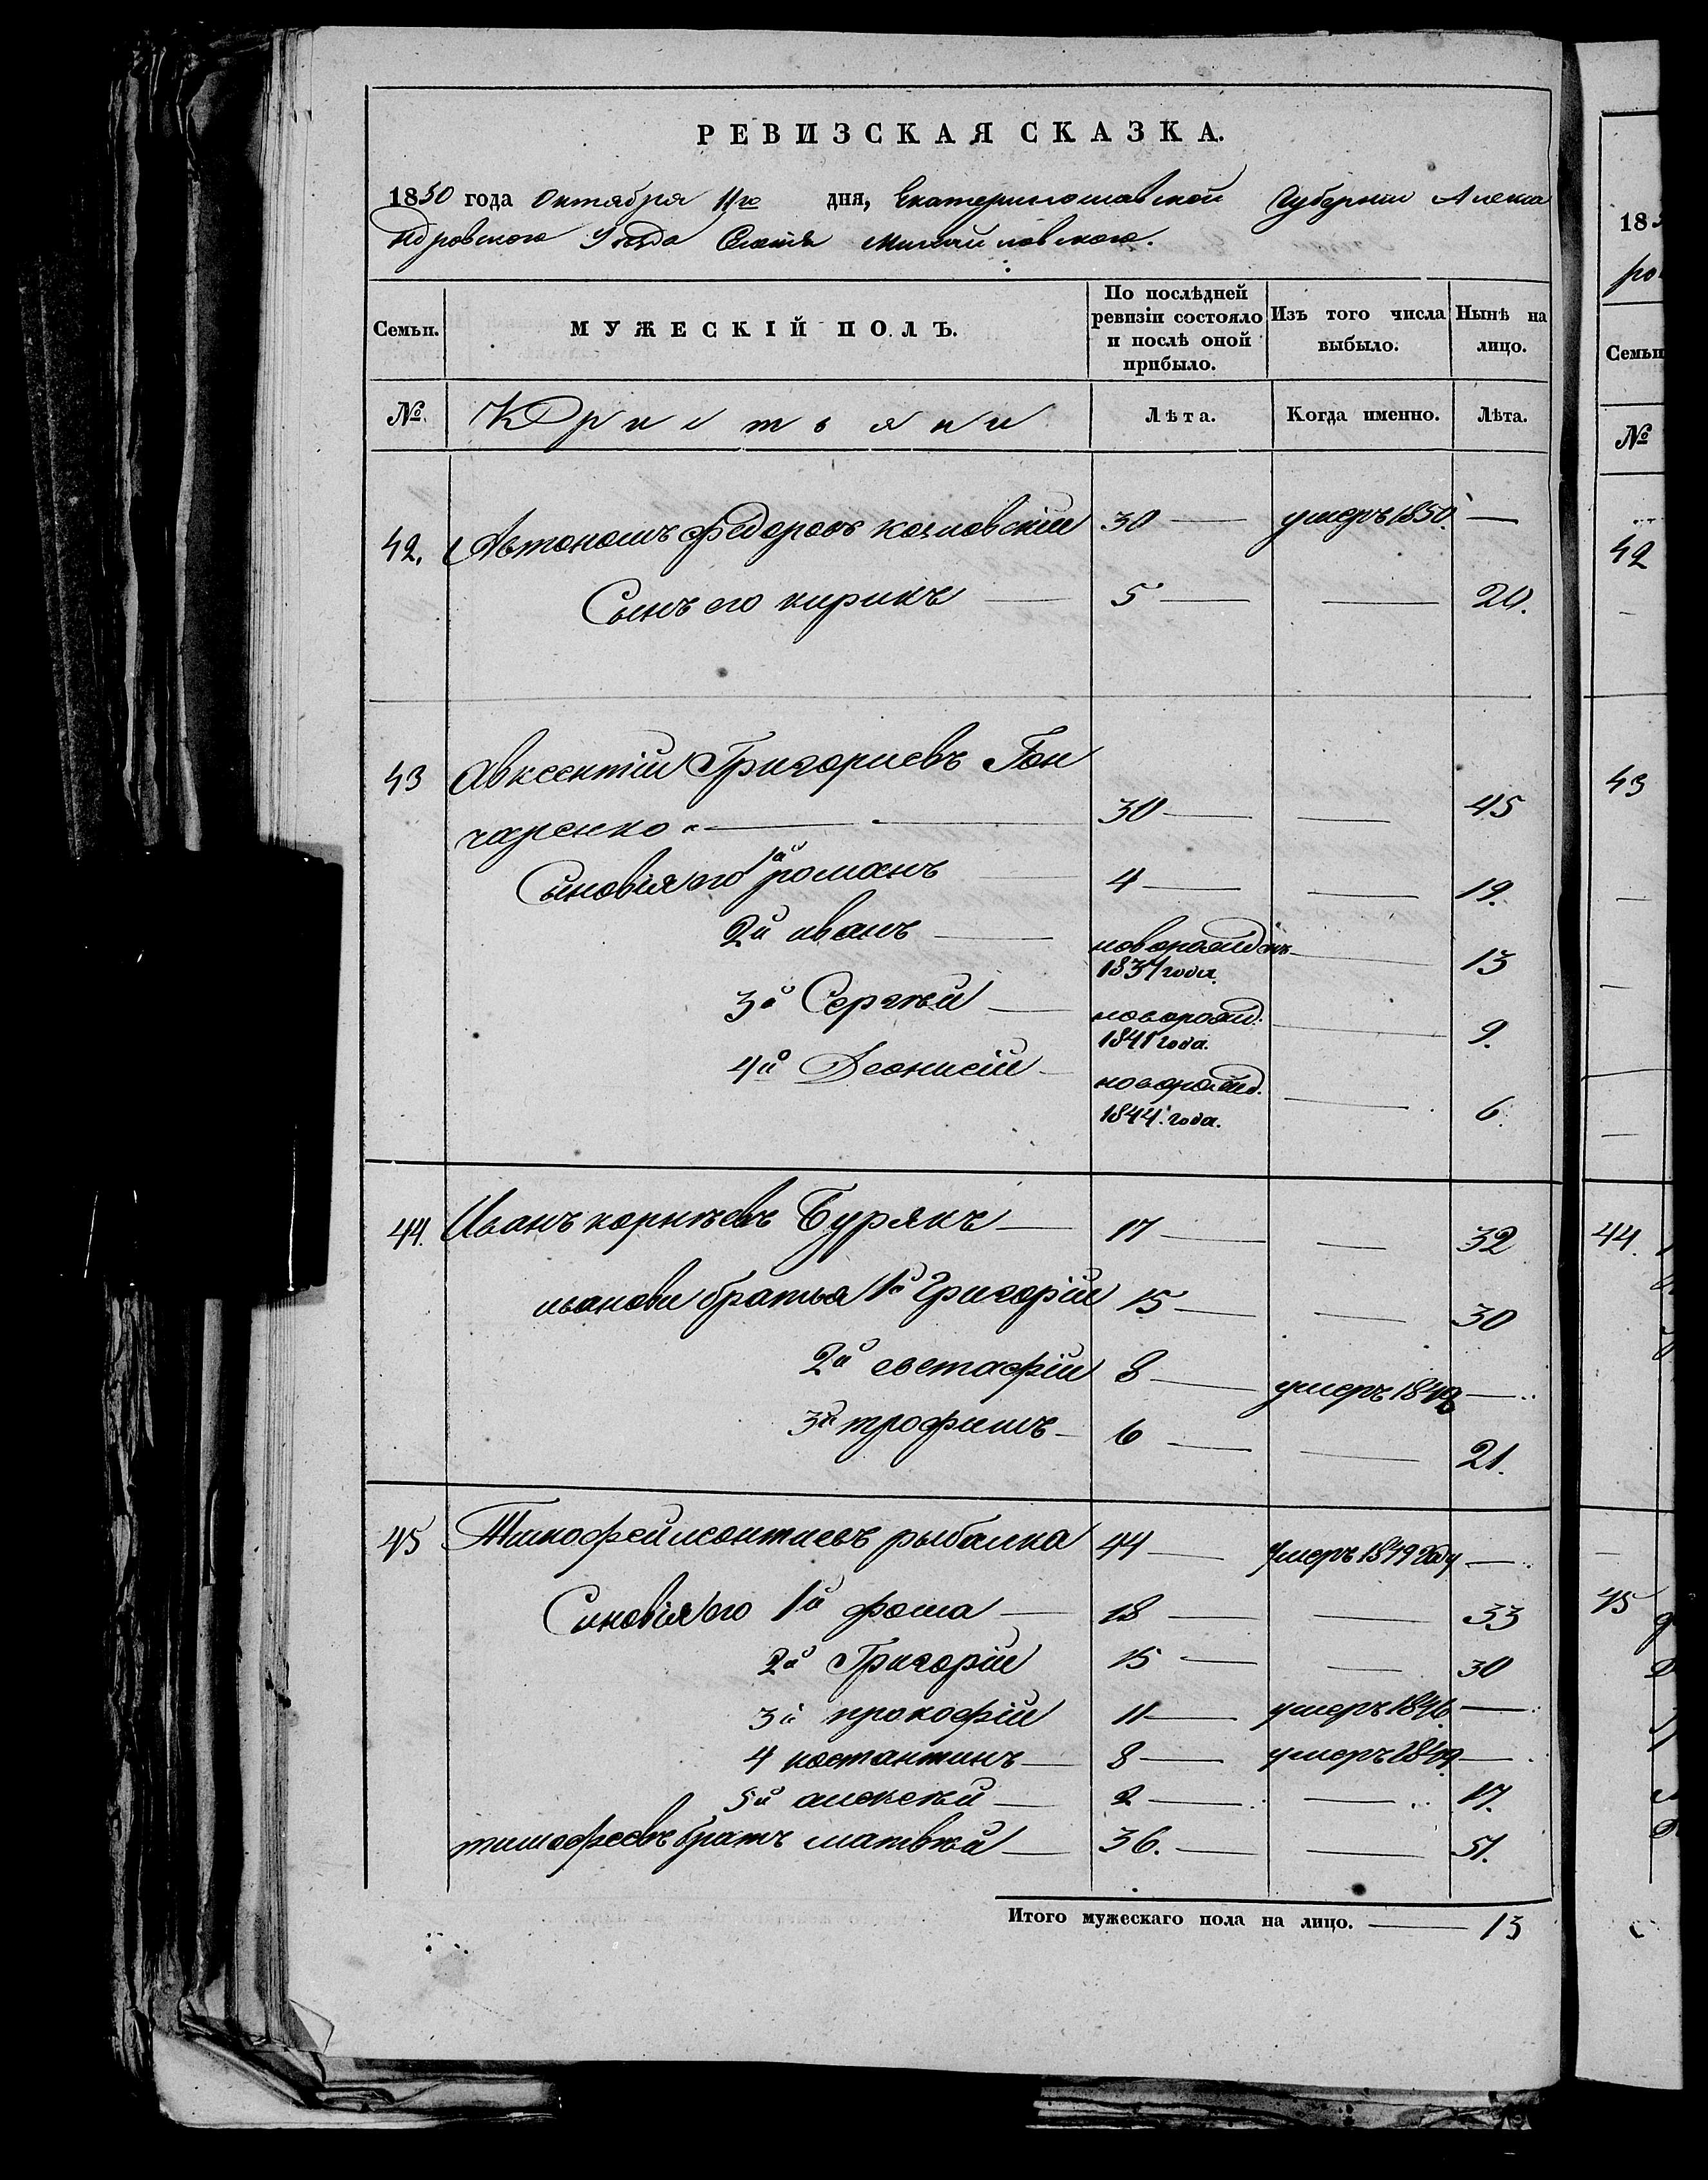 РЕВИЗСКАЯ СКАЗКА.
1850 года Октября 11го дня, Екатеринославской Губернии Алекса
ндровского Уезда Селенія Михайловского.
Семьи. МУЖЕСКІЙ ПОЛЪ. По послѣдней ревизіи состояло и послѣ оной прибыло. Изъ того числа выбыло. Нынѣ на лицо.
№. Кристьяни Лѣта. Когда именно. Лѣта.
42. Автономъ Федоровъ козловскій 30 — умеръ 1850. —
Сынъ его кирикъ — 5 — — 20.
43 Авксентій Григориевъ Гон
чаренко — 30 — — 45
Сыновія его 1й романъ — 4 — — 19.
2й иванъ — новорожденъ 1837 года. — 13
3й Сергѣй — новорожд. 1841 года. — 9.
4й Деонисій — новорожд. 1844 года. — 6.
44. Иванъ корнѣевъ Бурякъ — 17 — — 32
иванови братья 1й Григорій 15 — — 30
2й евстафій 8 — умеръ 1849 —
3й трофимъ — 6 — — 21.
45 Тимофей леонтиевъ рыбалка 44 — Умеръ 1849 году —
Синовія его 1й фома — 18 — — 33
2й Григорій 15 — — 30
3й прокофій 11 — умеръ 1846 —
4 костантинъ — 8 — умеръ 1849 —
5й алексѣй — 2 — — 17.
тимофеевъ братъ матвѣй — 36. — — 51.
Итого мужескаго пола на лицо. — 13
185
ро
Семьи
№
42
43
44.
45